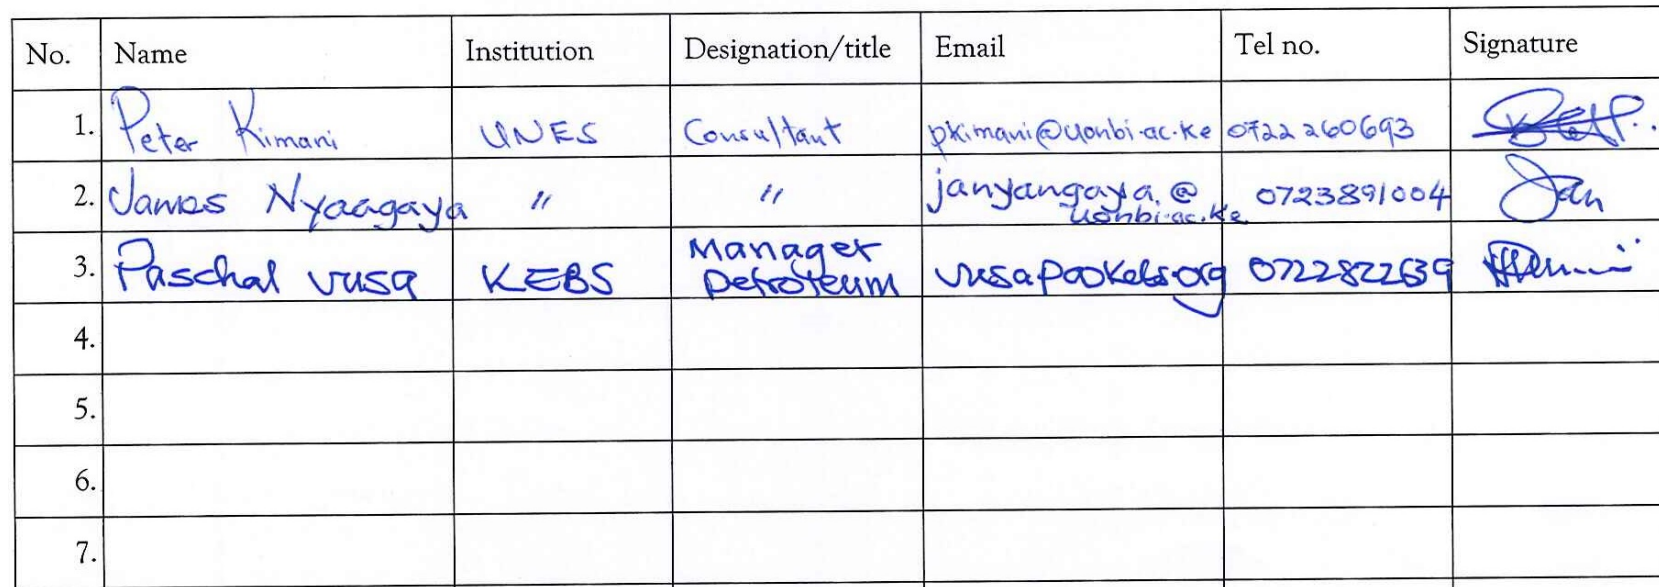 No. Name Institution Designation/title Email Tel no. Signature
1. Peter Kimani UNES Consultant pkimani@uonbi.ac.ke 0722260693
2. James Nyaagaya " " janyangaya.@
uonbi.ac.ke 0723891004 Jan
3. Paschal vusa KEBS Manager
petroleum 0722822639
4.
5.
6.
7.